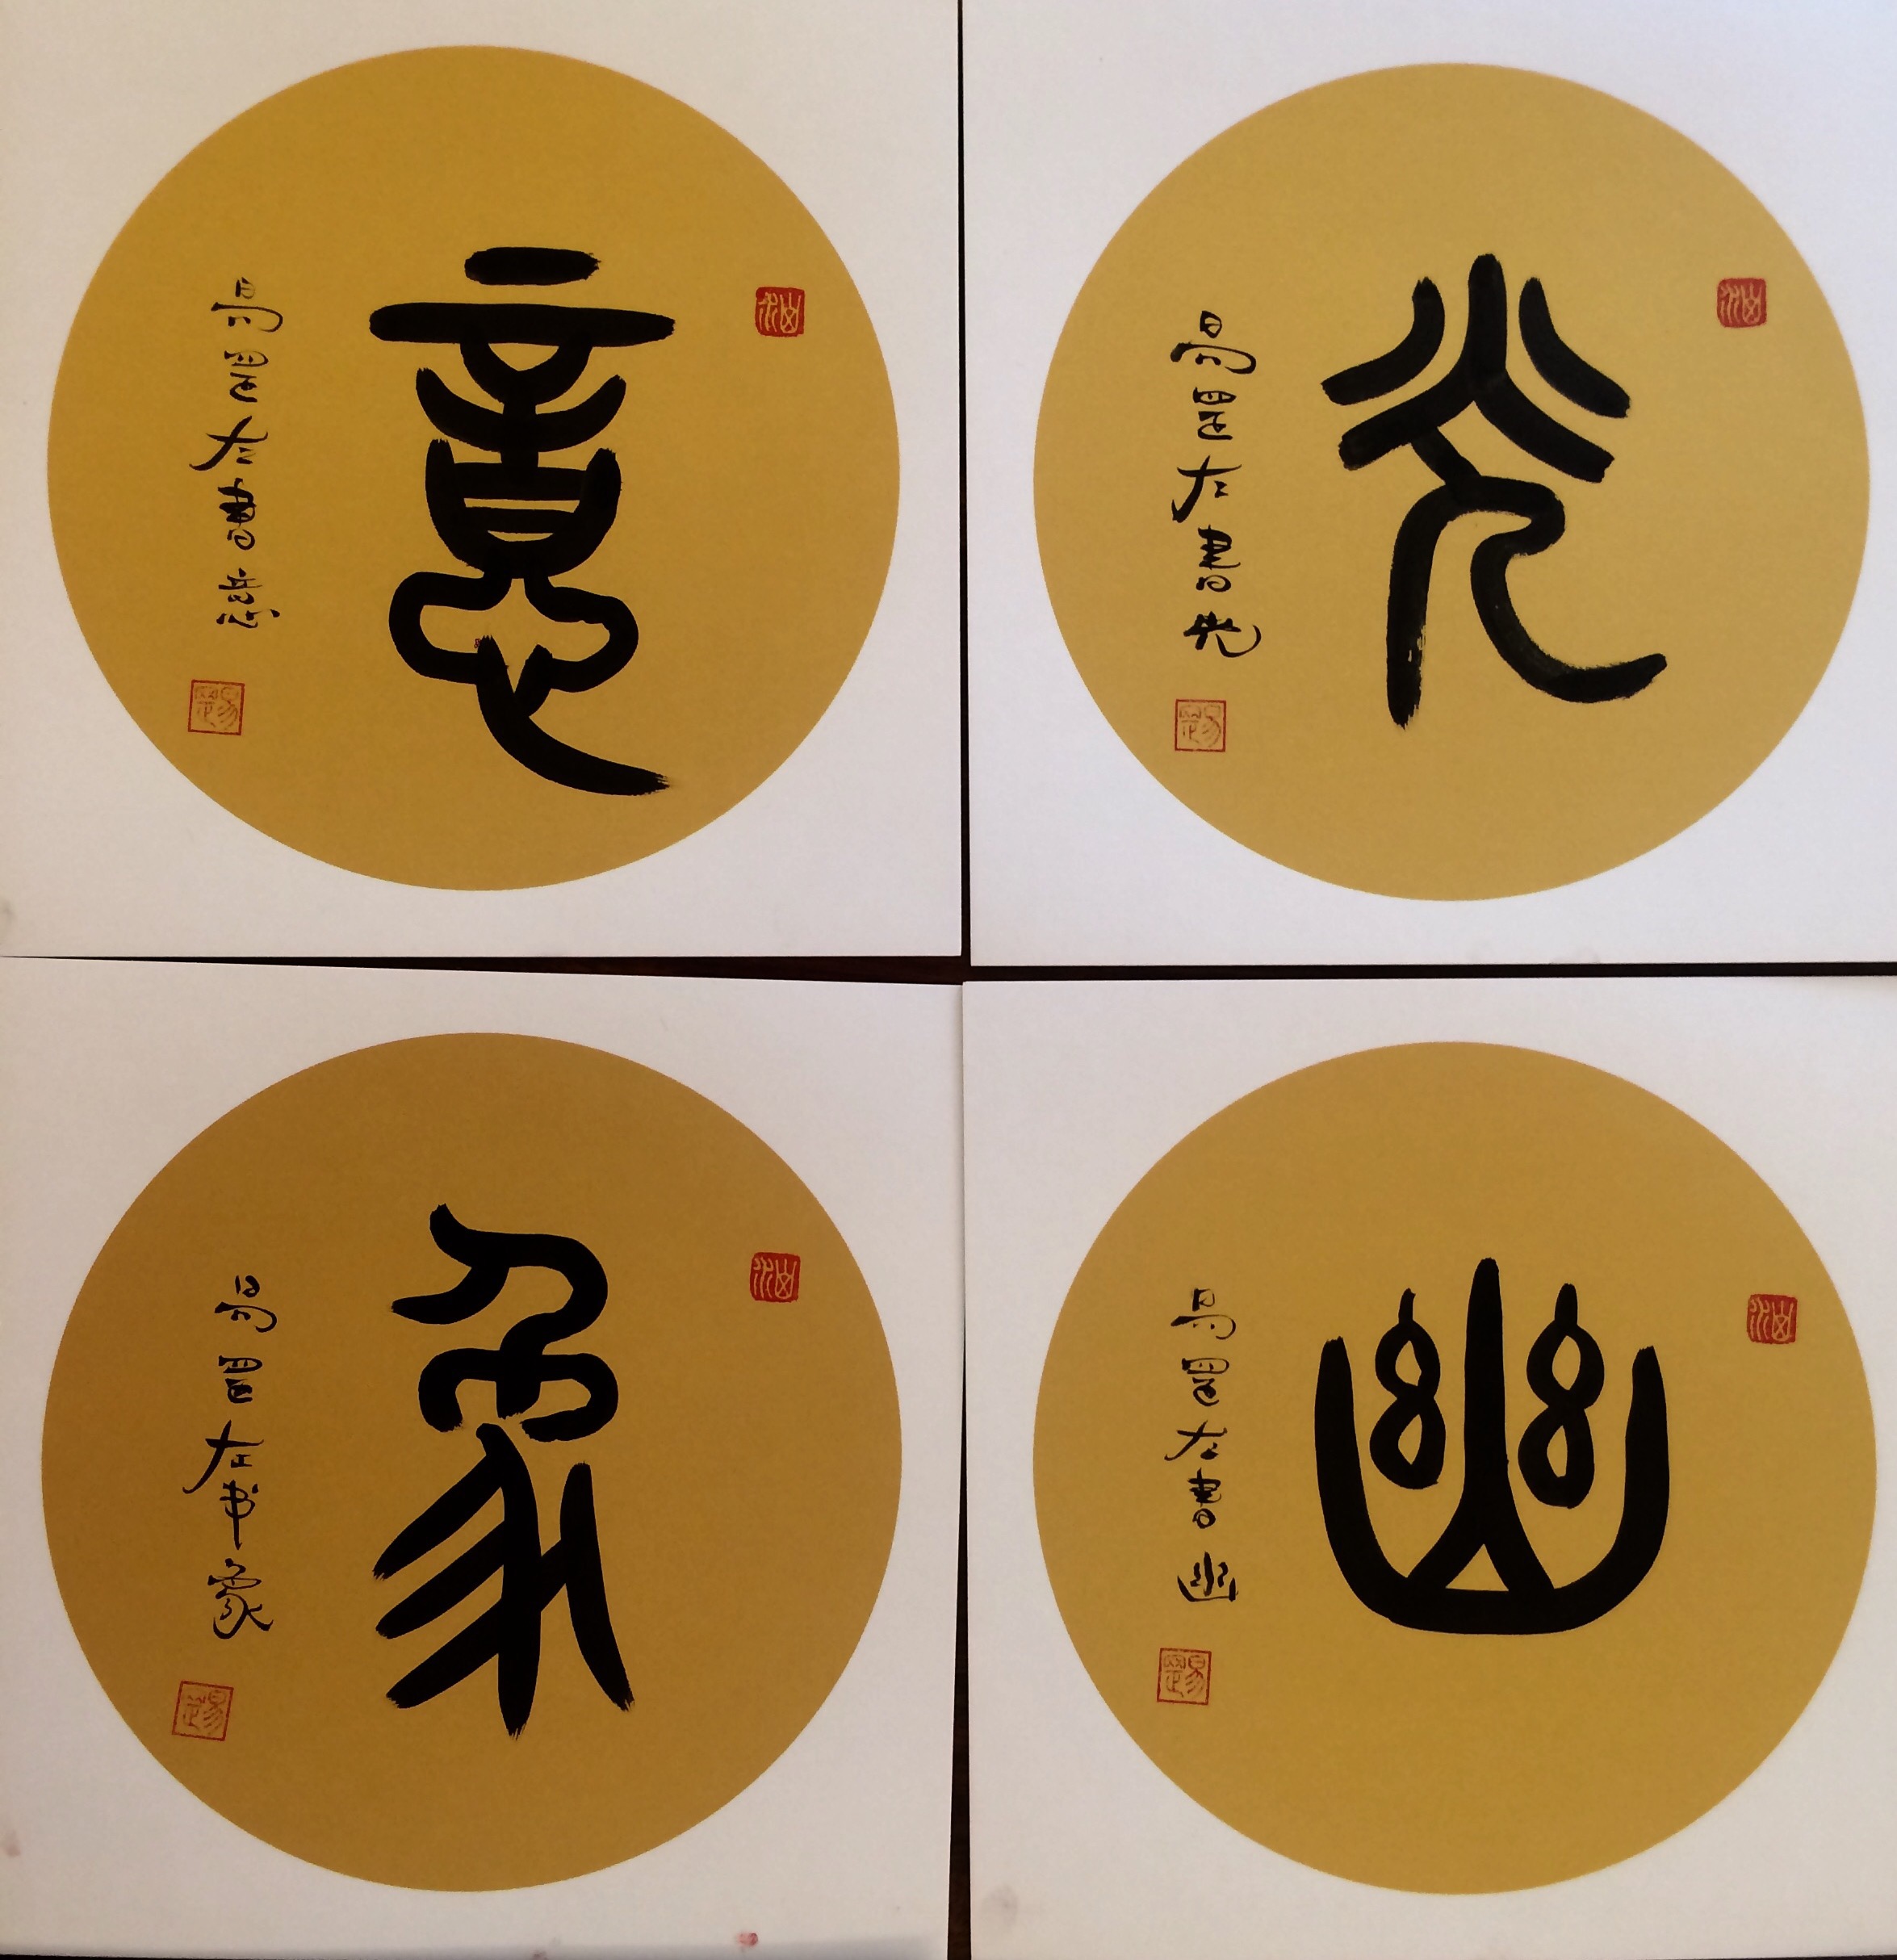 意
易罡左書意
光
易罡左書光
象
易罡左书象
幽
易罡左書幽